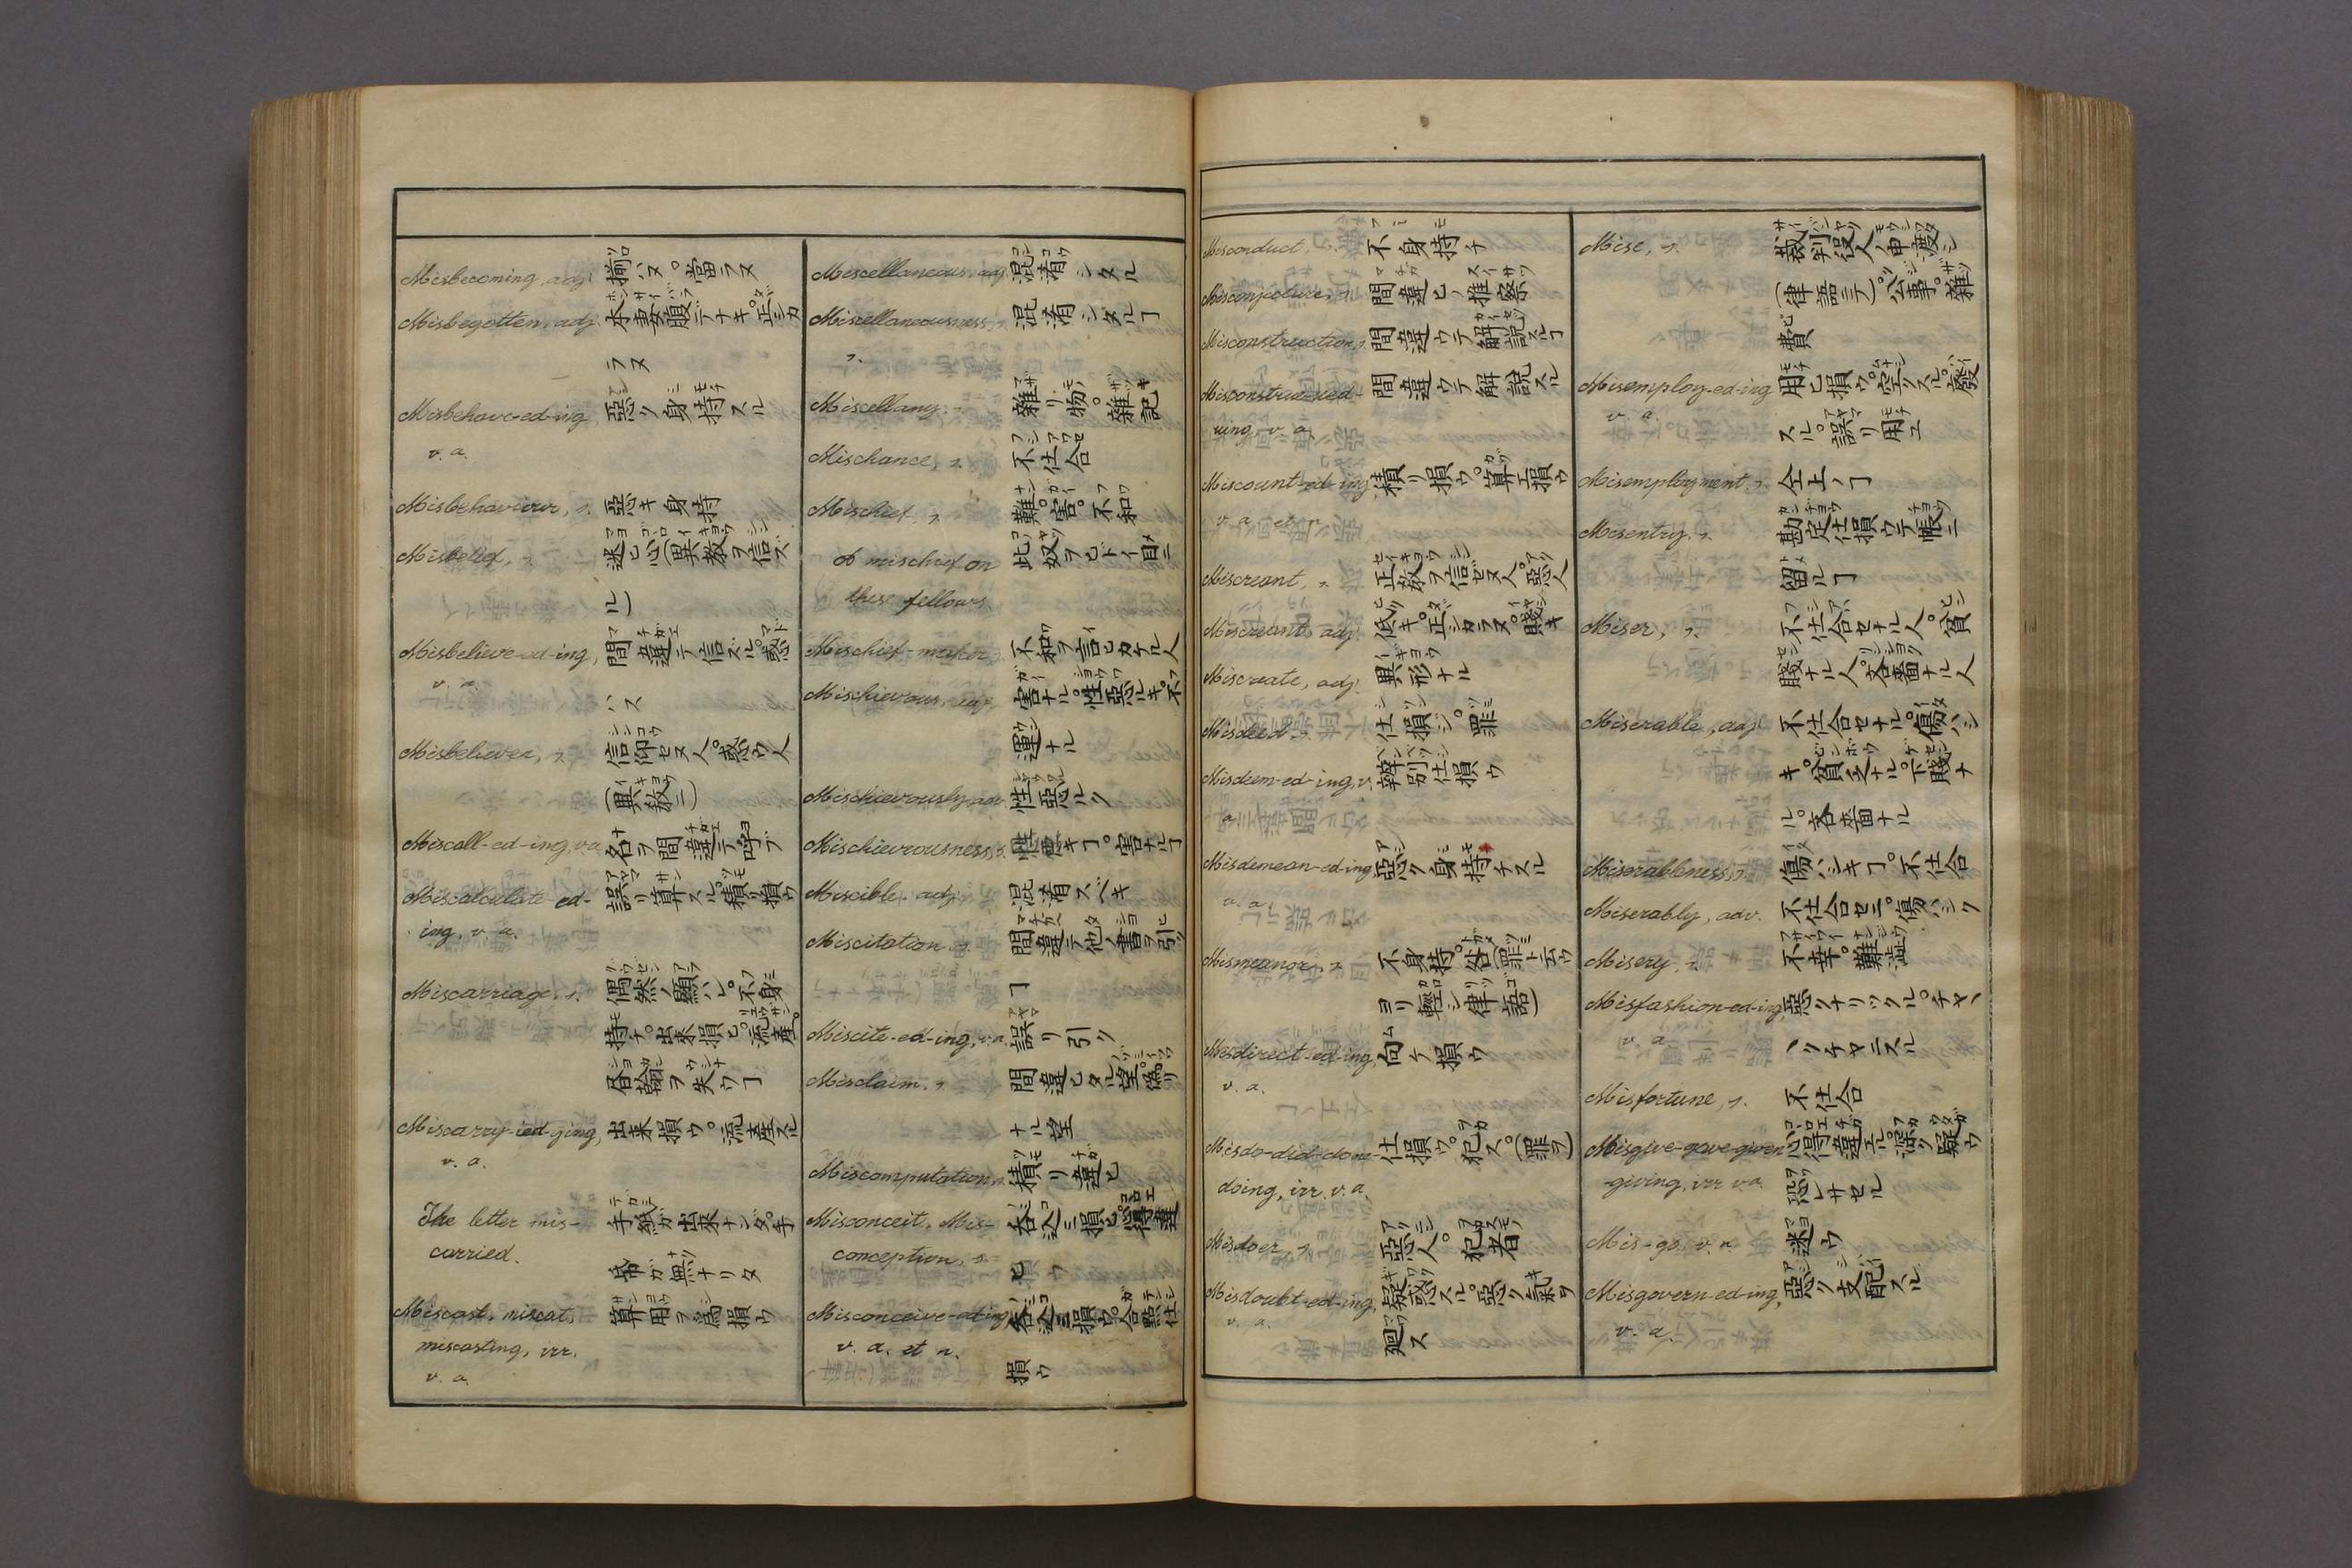 Misbecoming, adj. 揃ハヌ。當ラヌ
Misbegotten, adj. 本妻腹デナキ。正シカ
ラヌ
Misbehave-ed-ing, 惡ク身持スル
v. a.
Misbehaviour, s. 惡キ身持
Misbelief, s. 迷ヒ心(異教ヲ信ズ
ル)
Misbelieve-ed-ing, 間違テ信ズル。惑
v. n. ハス
Misbeliever, s. 信仰セヌ人。惑ウ人
(異教ニ)
Miscall-ed-ing, v.a. 名ヲ間違テ呼ブ
Miscalculate-ed- 誤リ算スル。積リ損ウ
ing, v. a.
Miscarriage, s. 偶然ノ顯ハレ。不身
持チ。出来損ヒ。流産。
書翰ヲ失ウコ
Miscarry-ied-ying, 出来損ウ。流産スル
v. a.
The letter mis- 手紙ガ出来ナンダ。手
carried. 帋ガ無ナリタ
Miscast, miscat, 算用ヲ為損ウ
miscasting, irr.
v. a.
Miscellaneous, adj. 混淆シタル
Miscellaneousness, 混淆シタルコ
s.
Miscellany, s. 雜リ物。雜記
Mischance, s. 不仕合
Mischief, s. 難。害。不和
A mischief on 此奴ヲヒドイ目ニ
these fellows
Mischief-maker, s. 不和ヲ言ヒカケル人
Mischievous, adj. 害ナル。性惡ルキ。不
運ナル
Mischievously, adv. 性惡ルク
Mischievousness, s. 性惡キコ。害ナルコ
Miscible, adj. 混淆スベキ
Miscitation, s. 間違テ他ノ書ヲ引ク
コ
Miscite-ed-ing, v.a. 誤リ引ク
Misclaim, s. 間違ヒタル望。偽リ
ナル望
Miscomputation, s. 積リ違ヒ
Misconceit, Mis- 呑込ミ損ヒ。心得違
conception, s. ヒ
Misconceive-ed-ing, 呑込ミ損ウ。合點仕
v. a. et n. 損ウ
Misconduct, s. 不身持チ
Misconjecture, s. 間違ヒノ推察
Misconstruction, s. 間違ウテ解説スルコ
Misconstrue-ued- 間違ウテ解説スル
uing, v. a.
Miscount-ed-ing, 積リ損ウ。算エ損ウ
v. a. et n.
Miscreant, s. 正教ヲ信ゼヌ人。惡人
Miscreant, adj. 低キ。正シカラヌ。賤キ
Miscreate, adj. 異形ナル
Misdeed, s. 仕損ジ。罪
Misdeem-ed-ing, v. 辨別仕損ウ
a.
Misdemean-ed-ing, 惡ク身持チスル
v. a.
Mismeanor, s. 不身持。咎(罪ト云ウ
ヨリ輕シ律語)
Misdirect-ed-ing, 向ケ損ウ
v. a.
Misdo-did-done- 仕損ウ。犯ス。(罪ヲ)
doing, irr. v. a.
Misdoer, s. 惡人。犯者
Misdoubt-ed-ing, 疑惑スル。惡ク氣ヲ
v. a. 廻ス
Mise, s. 裁判役人ノ申渡シ
(律語ニテ)。公事。雜
費
Misemploy-ed-ing, 用ヒ損ウ。空クスル。廢
v. a. スル。誤リ用ユ
Misemployment, s. 仝上ノコ
Misentry, s. 勘定仕損ウテ帳ニ
留ルコ
Miser, s. 不仕合セナル人。貧
賤ナル人。吝嗇ナル人
Miserable, adj. 不仕合セナル。傷ハシ
キ。貧乏ナル。下賤ナ
ル。吝嗇ナル
Miserableness, s. 傷ハシキコ。不仕合
Miserably, adv. 不仕合セニ。傷ハシク
Misery, s. 不幸。難澁
Misfashion-ed-ing, 惡クナリツクル。チヤ、
v. a. 、クチヤニスル
Misfortune, s. 不仕合
Misgive-gave-given- 心得違エル。深ク疑ウ
giving, irr. v.a. 恐レサセル
Mis-go, v. n. 迷ウ
Misgovern-ed-ing, 惡ク支配スル
v. a.